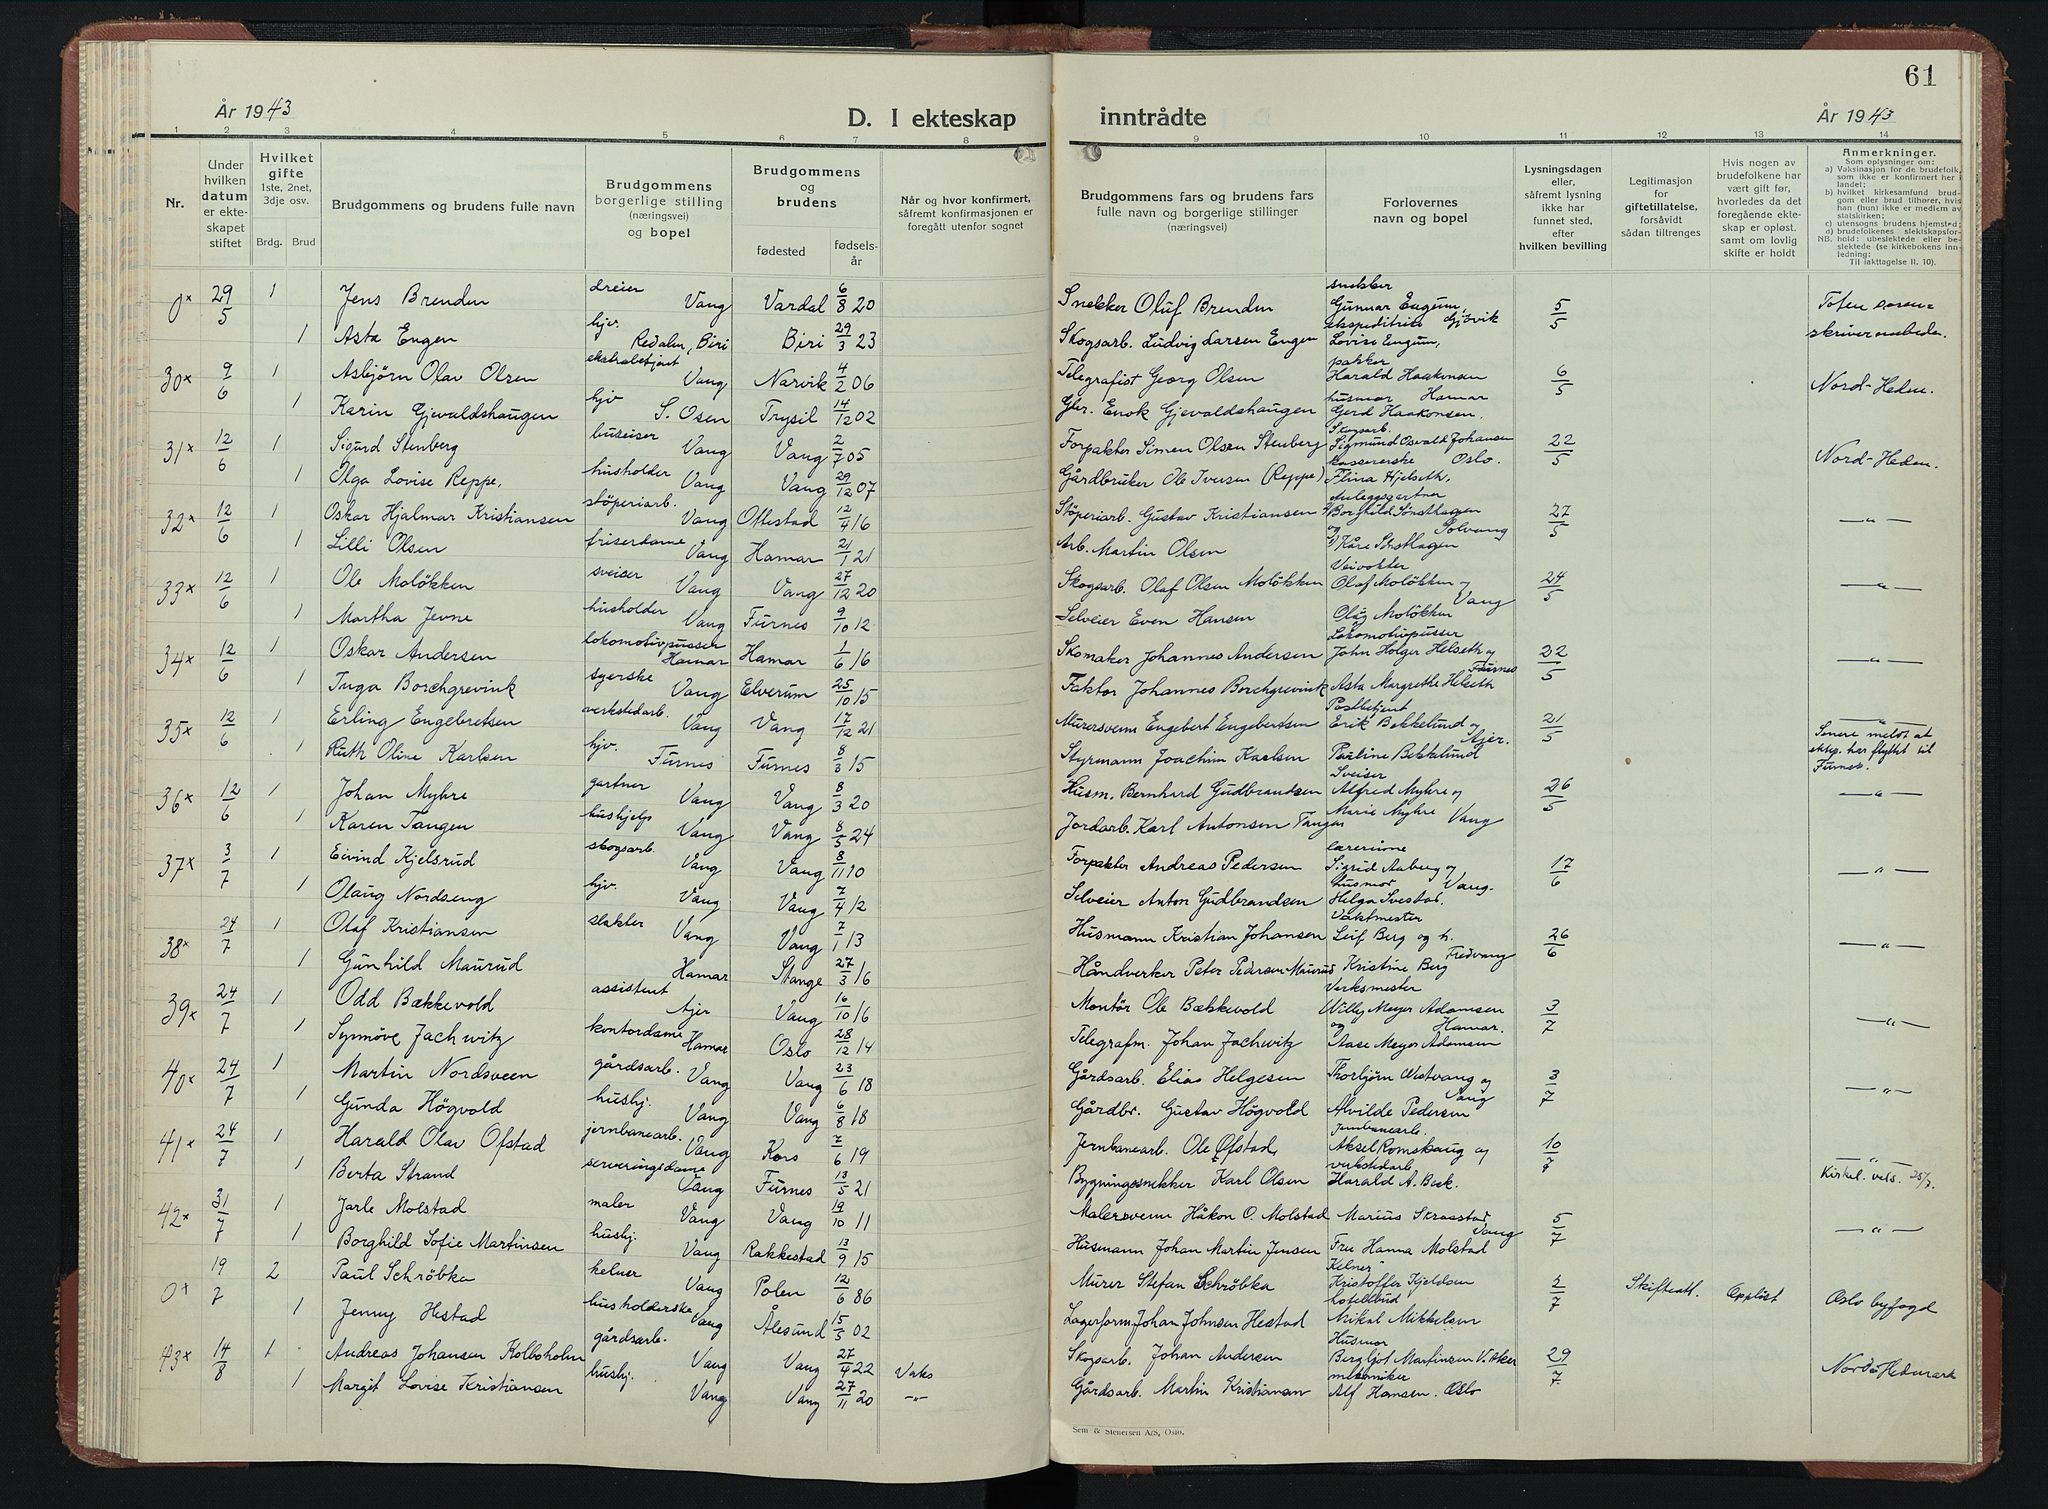 61
År 1943
D. I ekteskap
inntrådte
År 1943
1 2 3 4 5 6 7 8 9 10 11 12 13 14
Nr.
Under hvilken datum er ekteskapet stiftet
Hvilket gifte 1ste, 2net, 3dje osv.
Brdg. Brud
Brudgommens og brudens fulle navn
Brudgommens borgerlige stilling (næringsvei) og bopel
Brudgommens og brudens
fødested
fødselsår
Når og hvor konfirmert, såfremt konfirmasjonen er foregått utenfor sognet
Brudgommens fars og brudens fars fulle navn og borgerlige stillinger (næringsvei)
Forlovernes navn og bopel
Lysningsdagen eller, såfremt lysning ikke har funnet sted, efter hvilken bevilling
Legitimasjon for giftetillatelse, forsåvidt sådan tiltrenges
Hvis nogen av brudefolkene har vært gift før, hvorledes da det foregående ekteskap er opløst. samt om lovlig skifte er holdt
Anmerkninger.
Som oplysninger om:
a) Vaksinasjon for de brudefolk, som ikke er konfirmert her i landet;
b) hvilket kirkesamfund brudgom eller brud tilhører, hvis han (hun) ikke er medlem av statskirken;
c) utensogns brudens hjemsted;
d) brudefolkenes slektskapsforhold: ubeslektede eller beslektede (se kirkebokens innledning:
NB. Til iakttagelse II. 10).
0× 29/5 1 Jens Brenden dreier Vang Vardal 6/8 20 Snekker Oluf Brenden snekker Gunnar Engum, Gjøvik 5/5 Toten sorenskriverembede.
1 Asta Engen hjv. Redalen, Biri Biri 29/3 23 Skogsarb. Ludvig Larsen Engen ekspeditrise Lovise Engum,
30× 9/6 1 Asbjørn Olav Olsen ekstrabetjent Vang Narvik 4/2 06 Telegrafist Georg Olsen pakker Harald Haakonsen Hamar 6/5 Nord-Hedm.
1 Karin Gjevaldshaugen hjv S. Osen Trysil 14/12 02 Gbr. Enok Gjevaldshaugen husmor Gerd Haakonsen.
31× 12/6 1 Sigurd Stenberg bureiser Vang Vang 2/7 05 Forpakter Simen Olsen Stenberg Skogsarb. Sigmund Osvald Johansen Oslo. 22/5 Nord-Hedm.
1 Olga Lovise Reppe, husholder Vang Vang 29/12 07 Gårdbruker Ole Iversen (Reppe) kassererske Elina Hjelseth,
32× 12/6 1 Oskar Hjalmar Kristiansen støperiarb. Vang Ottestad 12/4 16 Støperiarb. Gustav Kristiansen Anleggsgartner Borghild Sønsthagen og Solvang 27/5 — " —
1 Lilli Olsen friserdame Vang Hamar 21/1 21 Arb. Martin Olsen Kåre Sønsthagen
33× 12/6 1 Ole Moløkken sveiser Vang Vang 27/12 20 Skogsarb. Olaf Olsen Moløkken Veivokter Olaf Moløkken og Vang 24/5 — " —
1 Martha Jevne husholder Vang Furnes 9/10 12 Selveier Even Hansen Olûg Moløkken
34× 12/6 1 Oskar Andersen lokomotivpusser Hamar Hamar 1/6 16 Skomaker Johannes Andersen Lokomotivpusser John Holger Helseth og Furnes 22/5 — " —
1 Inga Borchgrevink syerske Vang Elverum 25/10 15 Faktor Johannes Borchgrevink Asta Margrethe Helseth
35× 12/6 1 Erling Engebretsen verkstedarb. Vang Vang 17/12 21 Murersvenn Engebert Engebretsen Postbetjent Erik Bekkelund og Ajer. 21/5 — " — Senere meldt at ektep. har flyttet til Furnes.
1 Ruth Oline Karlsen hjv. Furnes Furnes 8/3 15 Styrmann Joachim Karlsen Pauline Bekkelund
36× 12/6 1 Johan Myhre gartner Vang Vang 8/3 20 Husm. Bernhard Gudbrandsen Sveiser Alfred Myhre og Vang 26/5 — " —
1 Karen Tangen hushjelp Vang Vang 8/5 24 Jordarb. Karl Antonsen Tangen Marie Myhre
37× 3/7 1 Eivind Kjelsrud skogsarb. Vang Vang 8/11 10 Forpakter Andreas Pedersen lærerinne Sigrid Aaberg og Vang. 17/6 — " —
1 Olaug Nordseng hjv. Vang Vang 7/4 12 Selveier Anton Gudbrandsen Husmor Helga Svestad.
38× 24/7 1 Olaf Kristiansen slakter Vang Vang 7/1 13 Husmann Kristian Johansen Vaktmester Leif Berg og h. Fredvang 26/6 — " —
1 Gunhild Maurud Hamar Stange 27/3 16 Håndverker Peter Pedersen Maurud Kristine Berg
39× 24/7 1 Odd Bækkevold assistent Ajer Vang 16/10 16 Montør Ole Bækkevold Verksmester Willy Meyer Adamsen og Hamar. 3/7 — " —
1 Synnøve Jachwitz kontordame Hamar Oslo 28/12 14 Telegrafm. Johan Jachwitz Aase Meyer Adamsen
40× 24/7 1 Martin Nordsveen gårdsarb. Vang Vang 23/6 18 Gårdsarb. Elias Helgesen Thorbjørn Westvang og Vang 3/7 — " —
1 Gunda Høgvold hushj. Vang Vang 6/8 18 Gårdbr. Gustav Høgvold Alvilde Pedersen
41× 24/7 1 Harald Olav Ofstad jernbanearb. Vang Kors 7/6 19 Jernbanearb. Ole Øfstad, Jernbanearb. Aksel Romskaug og 10/7 — " — Kirkel. vels. 25/7.
1 Berta Strand serveringsdame Vang Furnes 13/5 21 Bygningssnekker Karl Olsen verkstedarb Harald A. Bæk.
42× 31/7 1 Jarle Molstad maler Vang Vang 19/10 11 Malersvenn Håkon O. Molstad Marius Skraastad Vang 5/7 — " —
1 Borghild Sofie Martinsen hushj. Vang Rakkestad 13/9 15 Husmann Johan Martin Jensen Fru Hanna Molstad
0× 19/7 2 Paul Schröbka kelner Vang Polen 12/6 86 Murer Stefan Schröbka Kelner Kristoffer Kjeldsen 2/7 Skifteatt. Oppløst Oslo byfogd
1 Jenny Hestad husholderske Vang Ålesund 15/3 02 Lagerform. Johan Johnsen Hestad hotellbud Mikal Mikkelsen
43× 14/8 1 Andreas Johansen Kolboholm gårdsarb. Vang Vang 27/4 22 Vaks Skogsarb. Johan Andersen Husmor Bergljot Martinsen V. Aker 29/7 Nord-Hedmark
1 Margit Lovise Kristiansen hushj. Vang Vang 27/11 20 — " — Gårdsarb. Martin Kristiansen mekaniker Alf Hansen. Oslo
Sem & Stenersen A/S, Oslo.